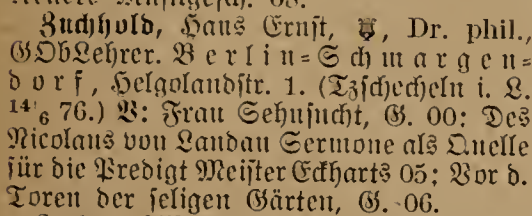 Zuchhold, Hans Ernst, Dr. phil.,
GObLehrer. Berlin=Schmargen=
dorf, Helgolandstr. 1. (Tzschecheln i. L.
14/6 76.) V: Frau Sehnsucht, G. 00: Des
Nicolaus von Landau Sermone als Quelle
für die Predigt Meister Eckharts 05; Vor d.
Toren der seligen Gärten, G. 06.